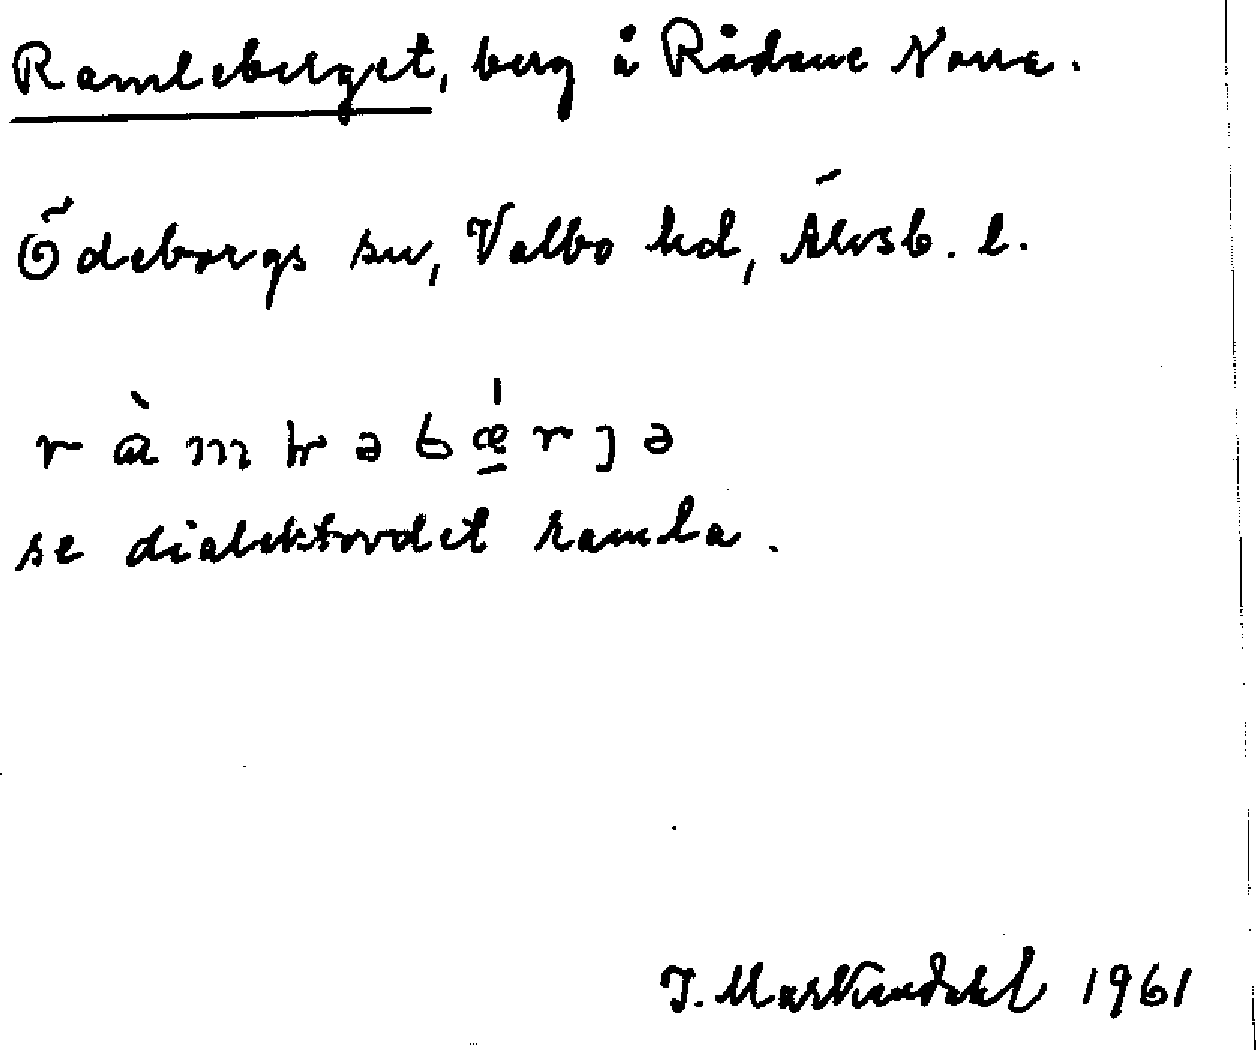 Ramleberget, berg å Rådane Norra.
Ödeborgs sn, Valbo hd, Älvsb. l.
r à m ꞎ ə b ǽ̱ r ȷ ə
se dialektordet ramla.
J. Martindahl 1961